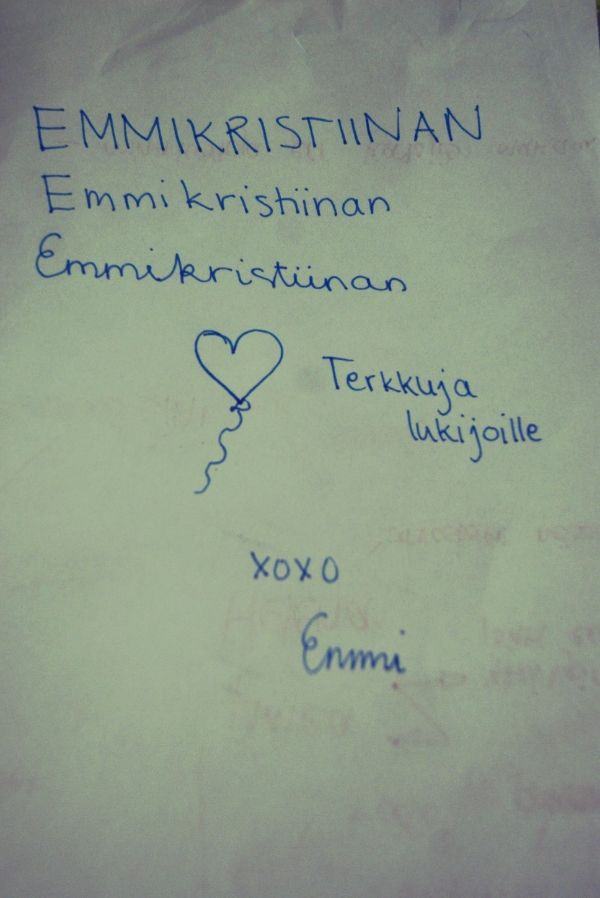 EMMIKRISTIINAN
Emmikristiinan
Emmikristiinan
Terkkuja
lukijoille
xoxo
Emmi